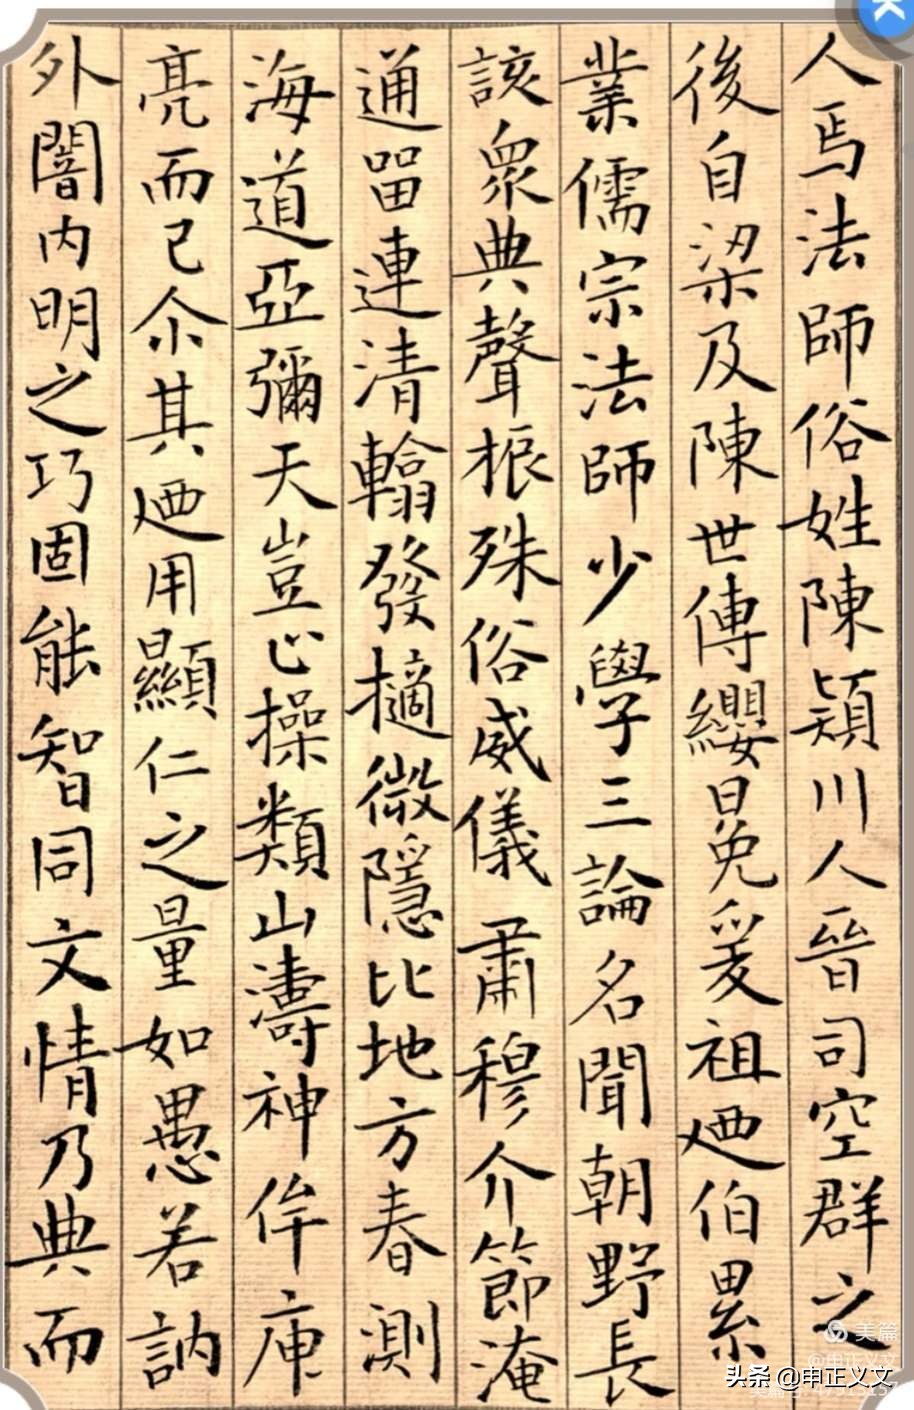 人焉法師俗姓陳潁川人晉司空群之
後自梁及陳世傳纓冕爰祖廼伯累
業儒宗法師少學三論名聞朝野長
該衆典聲振殊俗威儀肅穆介節淹
通留連清翰發擿微隱比地方春測
海道亞彌天豈止操類山濤神侔庾
亮而已尒其廼用顯仁之量如愚若訥
外闇内明之巧固能智同文情乃典而
美篇
头条 @申正义文